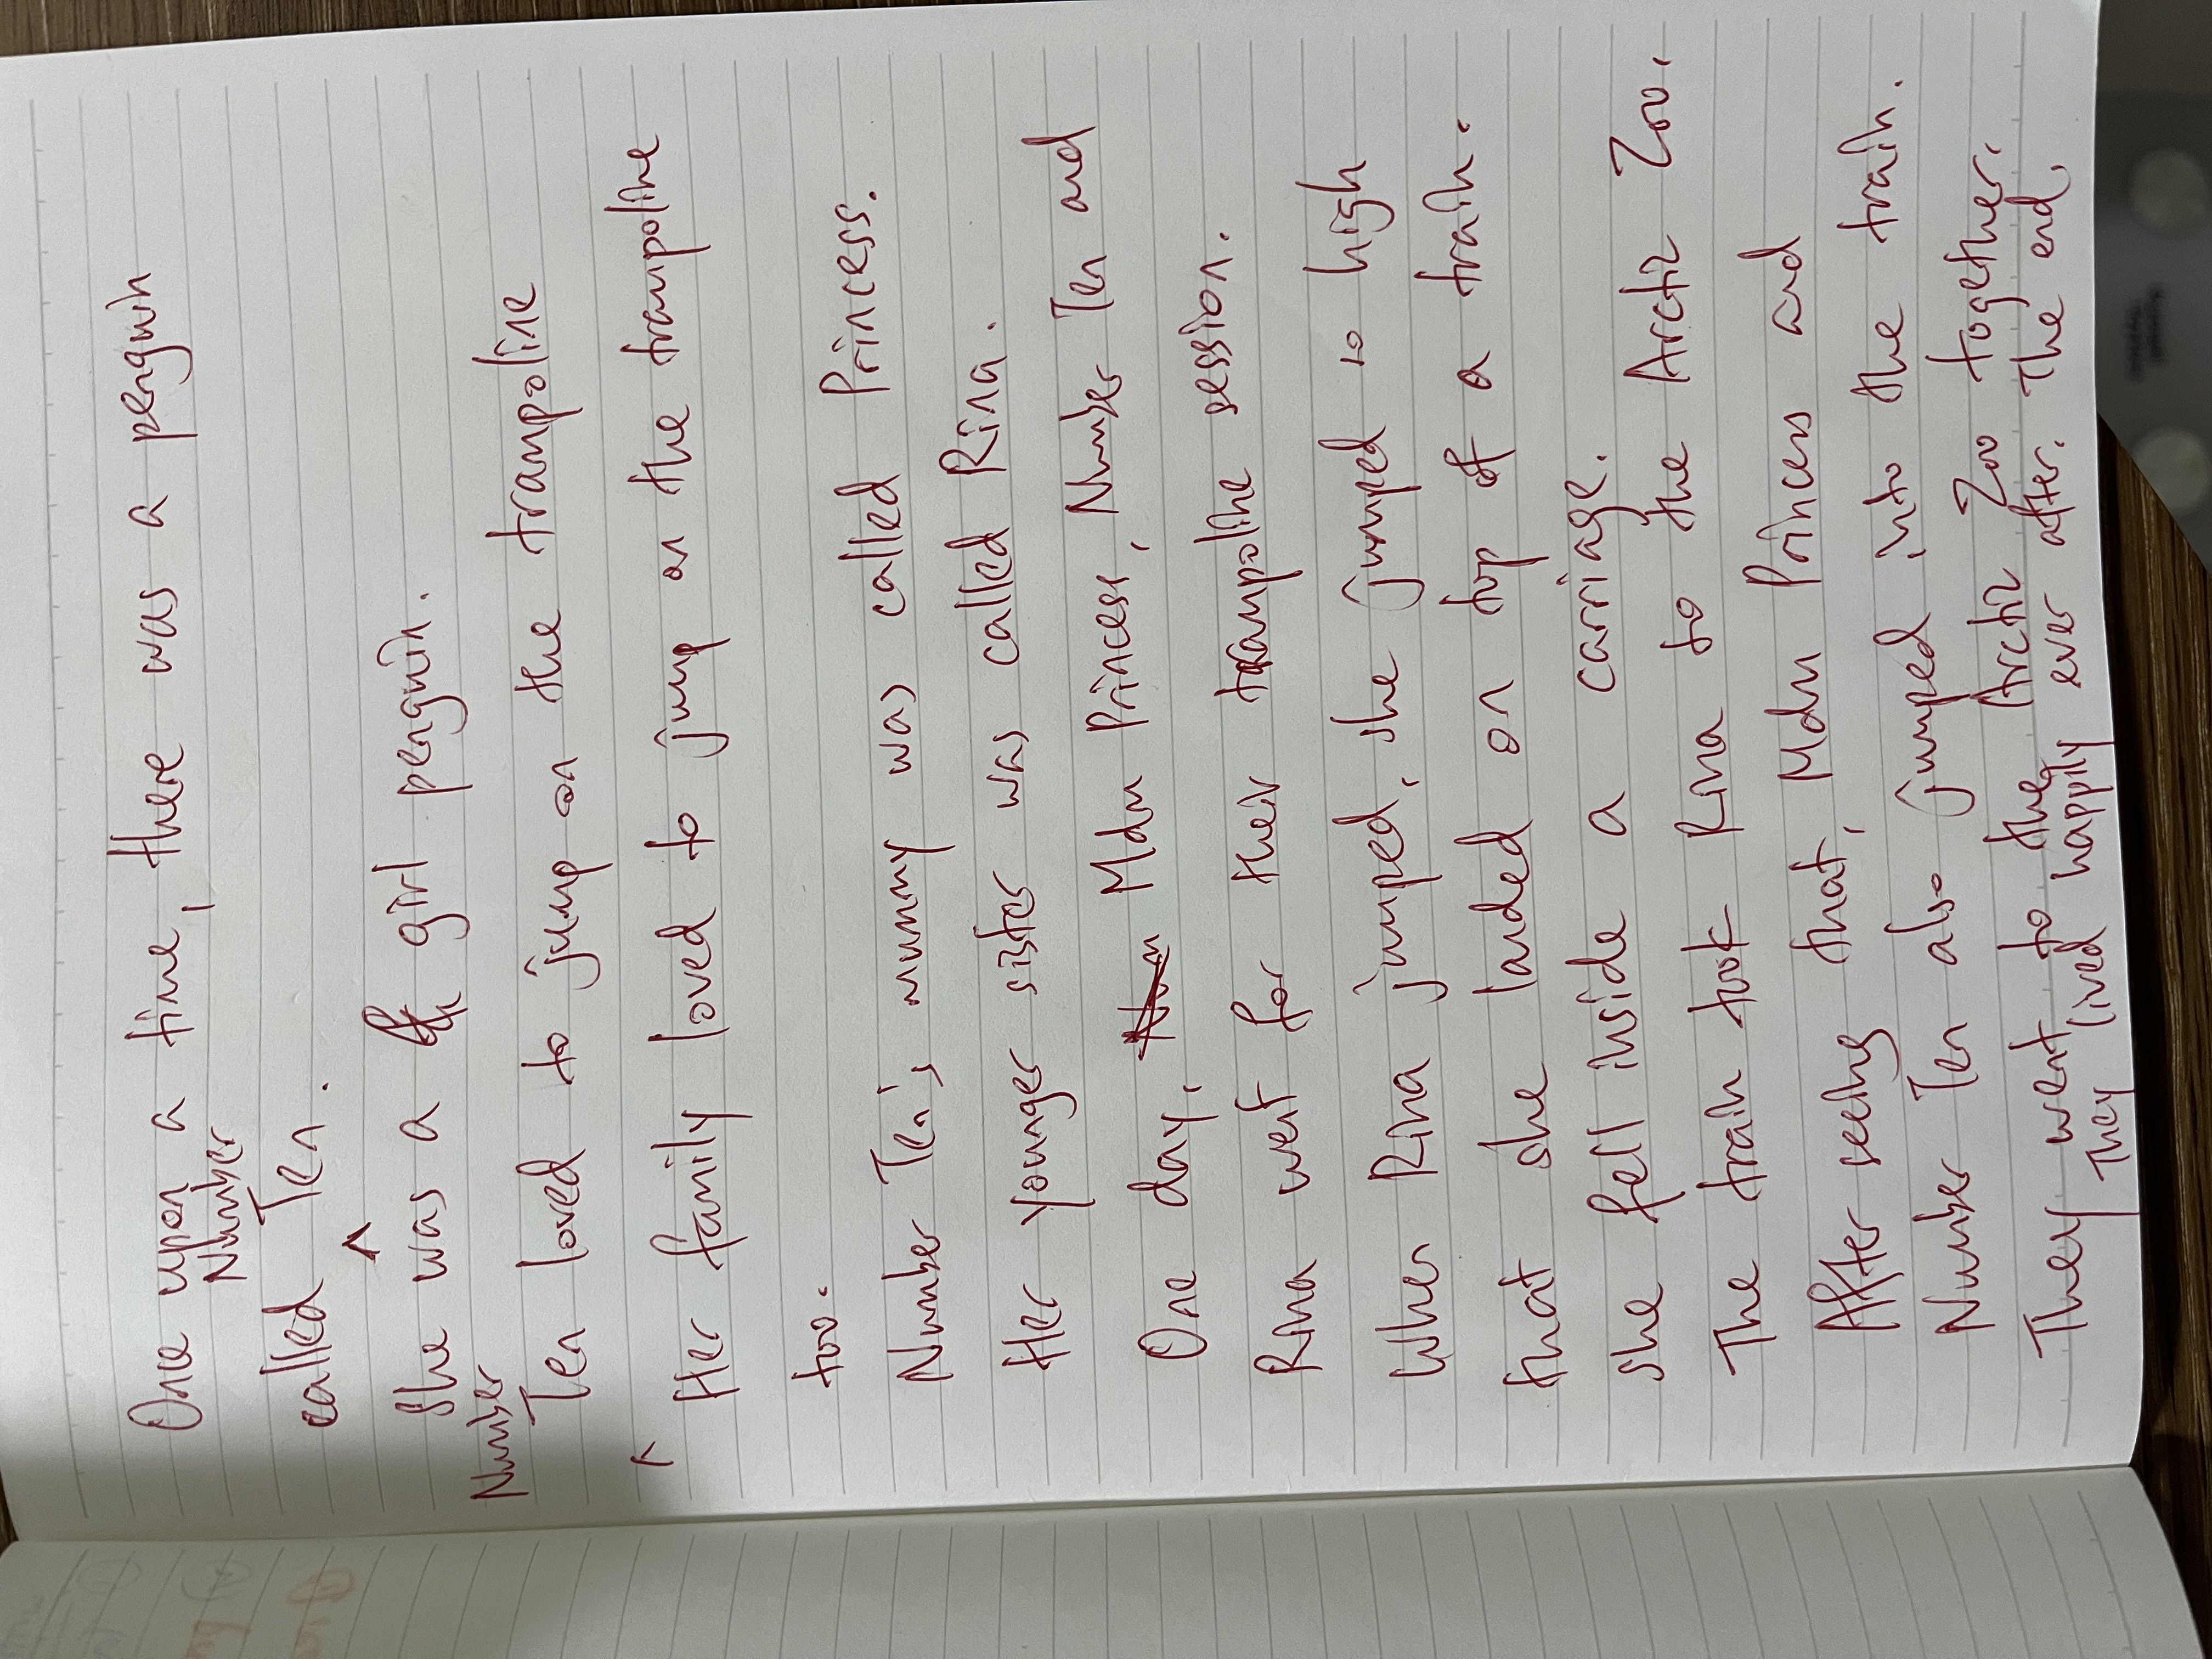 One upon a time, there was a penguin
Number
called Ten.
^
She was a girl penguin.
Number
Ten loved to jump on the trampoline
^
Her family loved to jump on the trampoline
too.
Number Ten's mummy was called Princess.
Her younger sister was called Rina.
One day, Mdm Princess, Number Ten and
Rina went for their trampoline session.
When Rina jumped, she jumped so high
that she landed on top of a train.
She fell inside a carriage.
The train took Rina to the Arctic Zoo.
After seeing that, Mdm Princess and
Number Ten also jumped into the train.
They went to the Arctic Zoo together.
They lived happily ever after. The end.